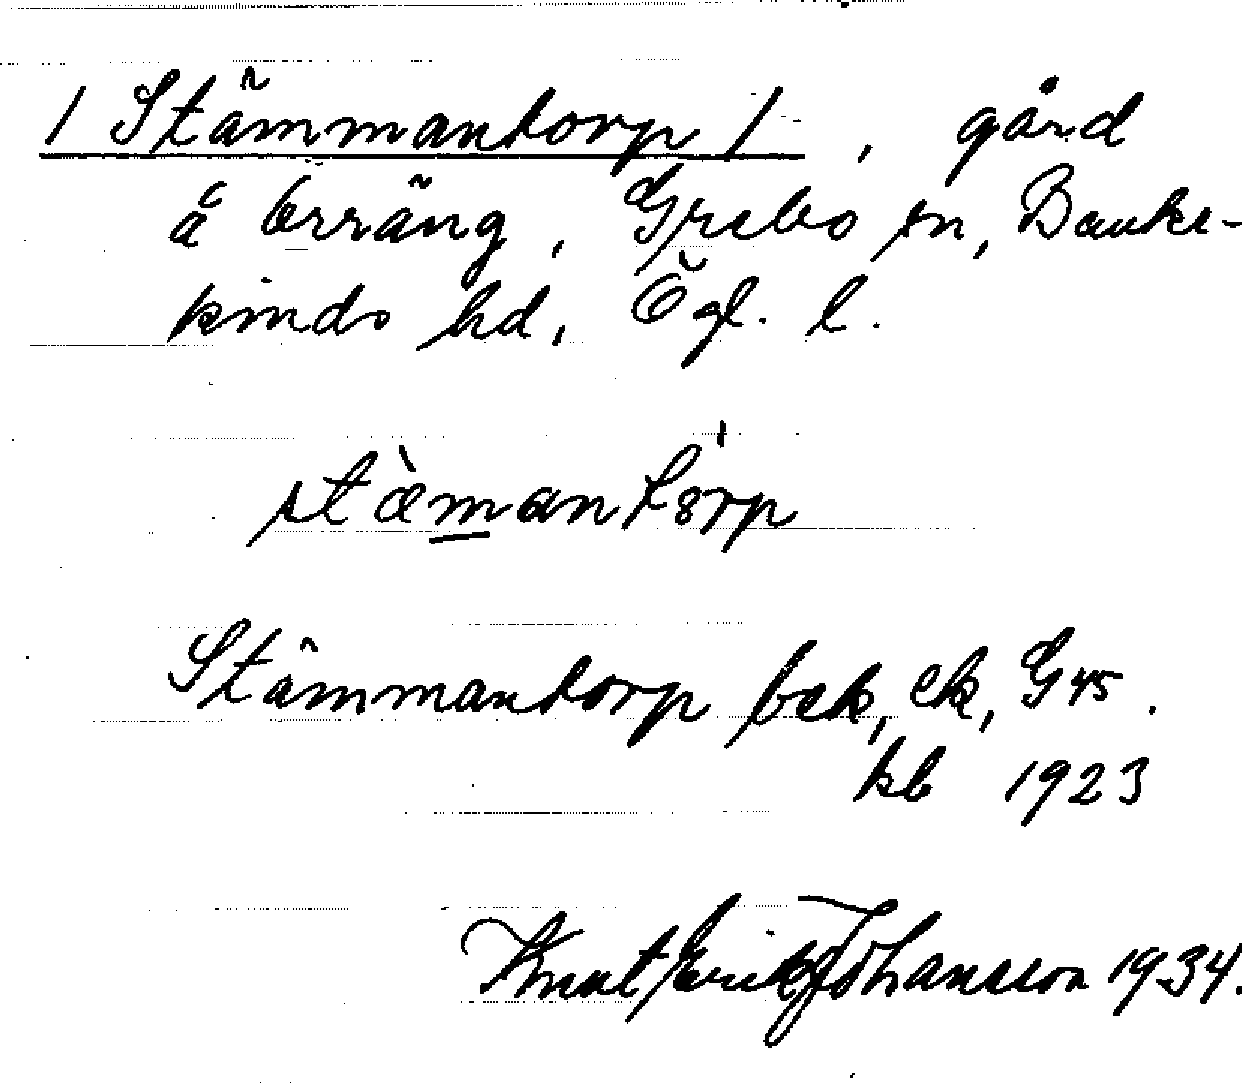 / Stämmantorp / , gård
å Orräng, Grebo sn, Banke-
kinds hd, Ögl. l.
stæ̀mantórp
Stämmantorp bek, ek, G45.
kb 1923
Knut Erik Johansson 1934.